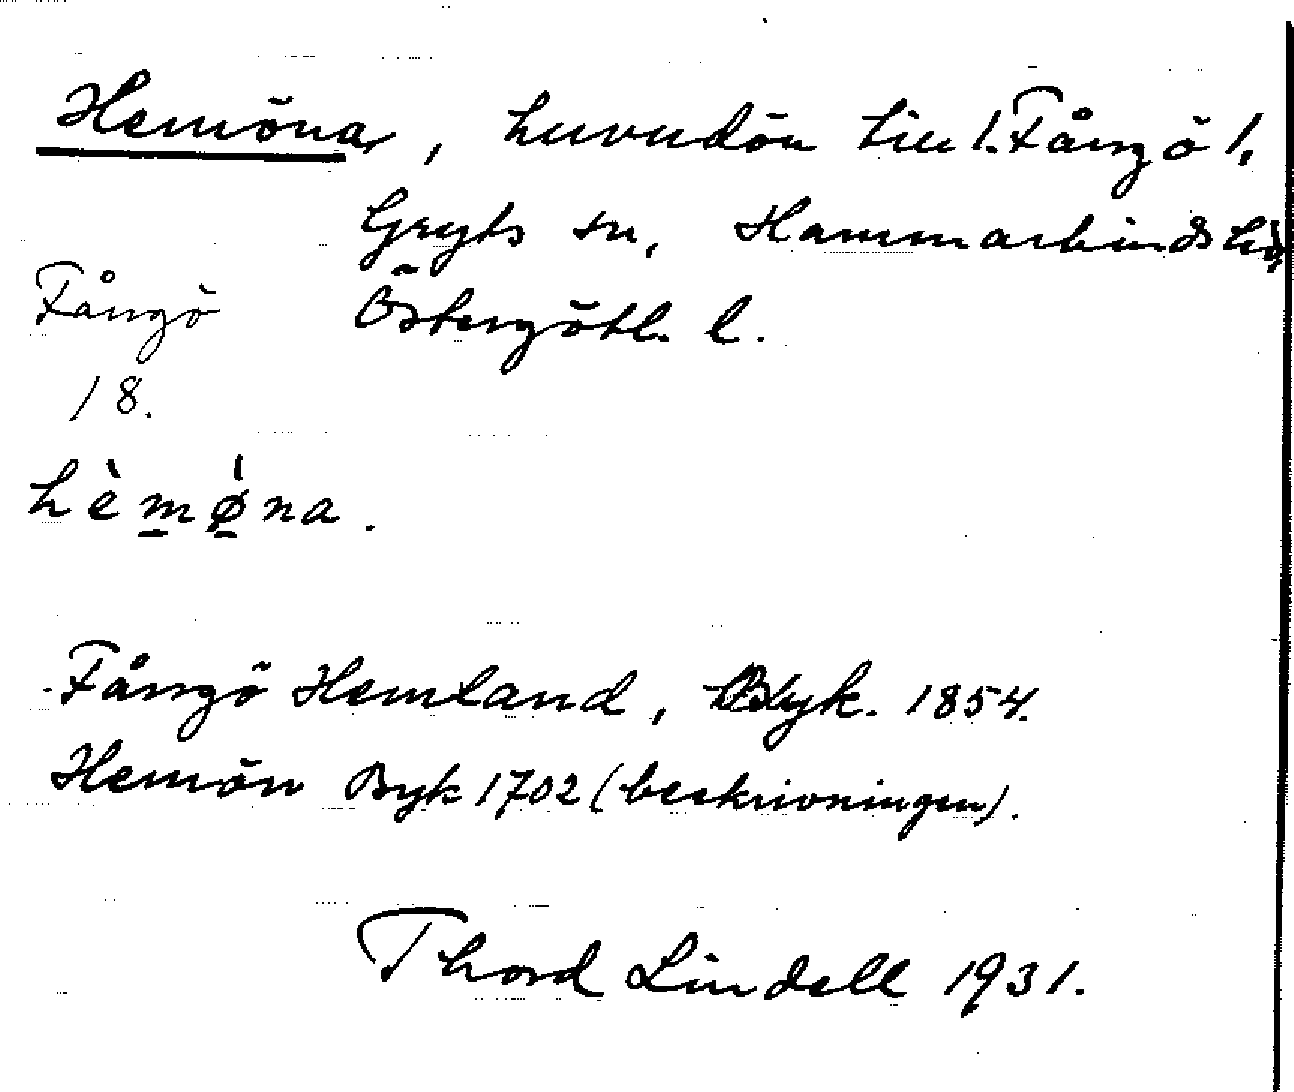 Hemöna, huvudön till /. Fångö /.
Gryts sn, Hammarkinds hd,
Östergötl. l.
Fångö
18.
hèmǿna.
Fångö Hemland, Byk. 1854.
Hemön Byk 1702 (beskrivningen).
Thord Lindell 1931.